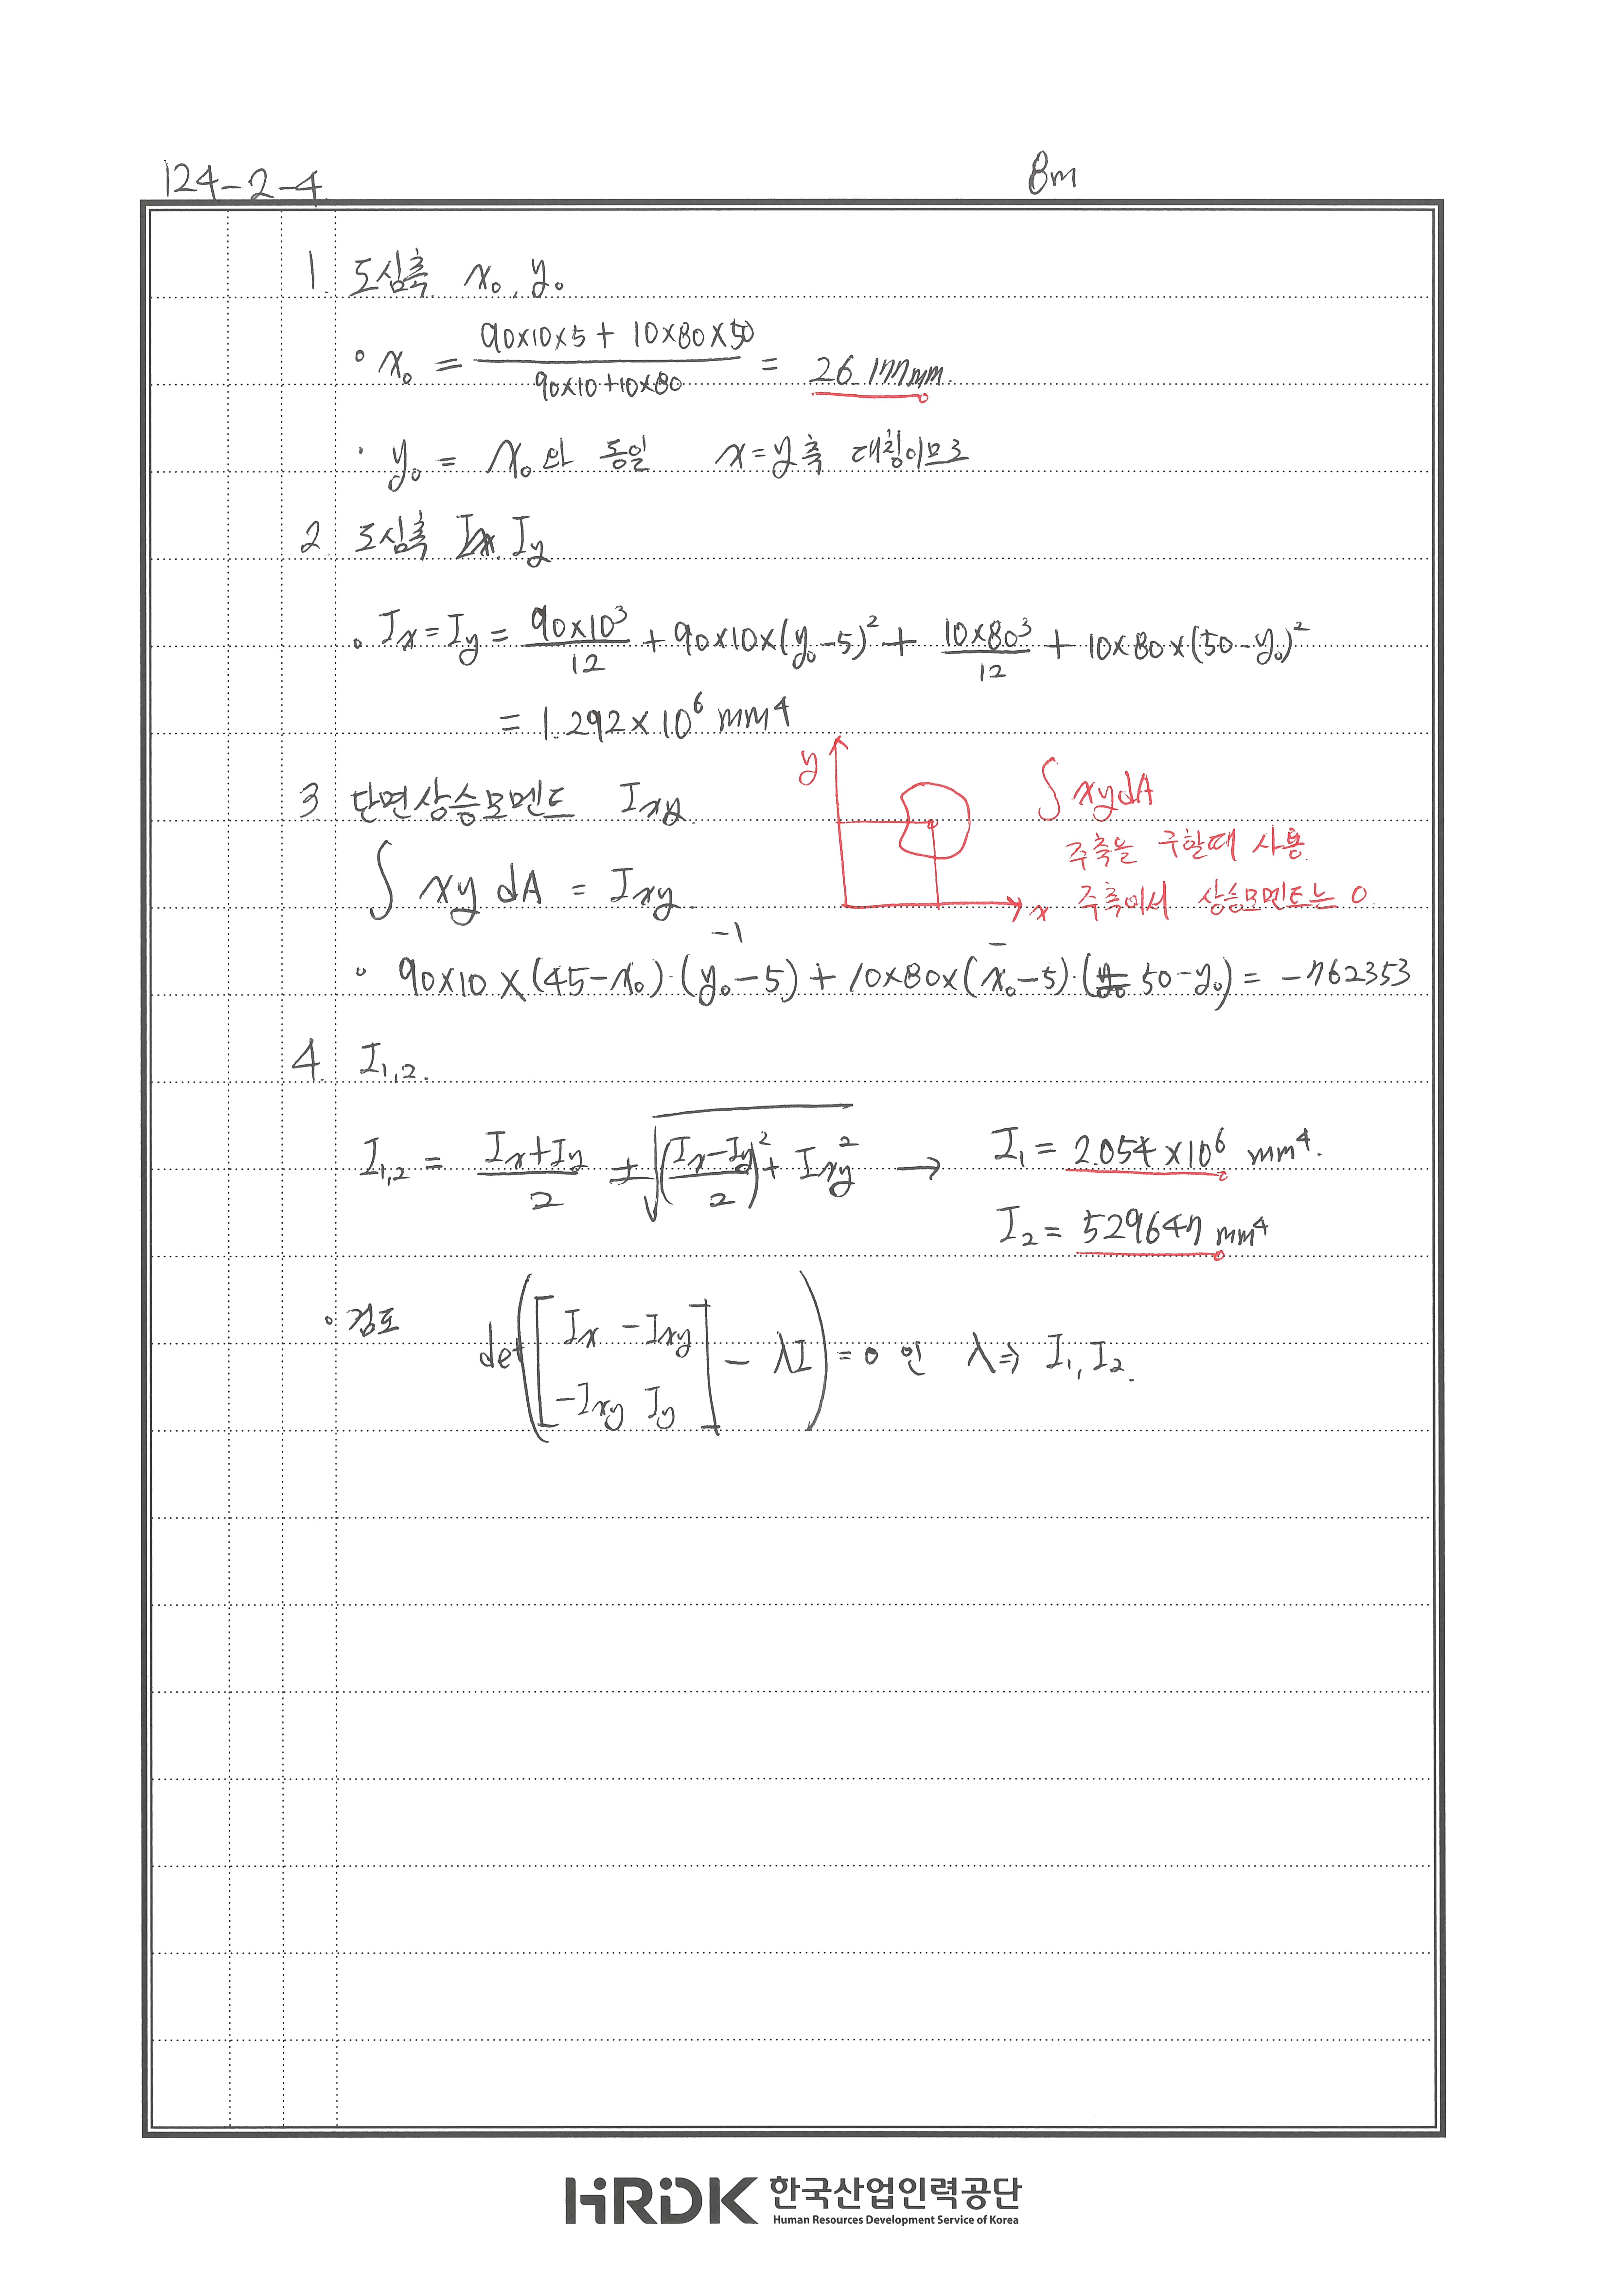 124-2-4
8m
1. 도심축 x₀, y₀
∘ x₀ = (90×10×5 + 10×80×50) / (90×10+10×80) = 26.17mm
· y₀ = x₀와 동일 x=y축 대칭이므로
2. 도심축 Ix. Iy
∘ Ix = Iy = 90×10³/12 + 90×10×(y₀-5)² + 10×80³/12 + 10×80×(50-y₀)²
= 1.292×10⁶ mm⁴
3 단면상승모멘트 Ixy.
y
x
∫ xydA
주축을 구할때 사용.
주축에서 상승모멘트는 0.
∫ xy dA = Ixy.
-1
-
∘ 90×10×(45-x₀)·(y₀-5) + 10×80×(x₀-5)·(50-y₀) = -762353
4. I₁,₂.
I₁,₂ = (Ix+Iy)/2 ± √(((Ix-Iy)/2)² + Ixy²) → I₁ = 2.054×10⁶ mm⁴.
I₂ = 529647 mm⁴
∘ 검토 det([Ix -Ixy
-Ixy Iy] - λI) = 0 인 λ ⇒ I₁, I₂.
HRDK 한국산업인력공단
Human Resources Development Service of Korea